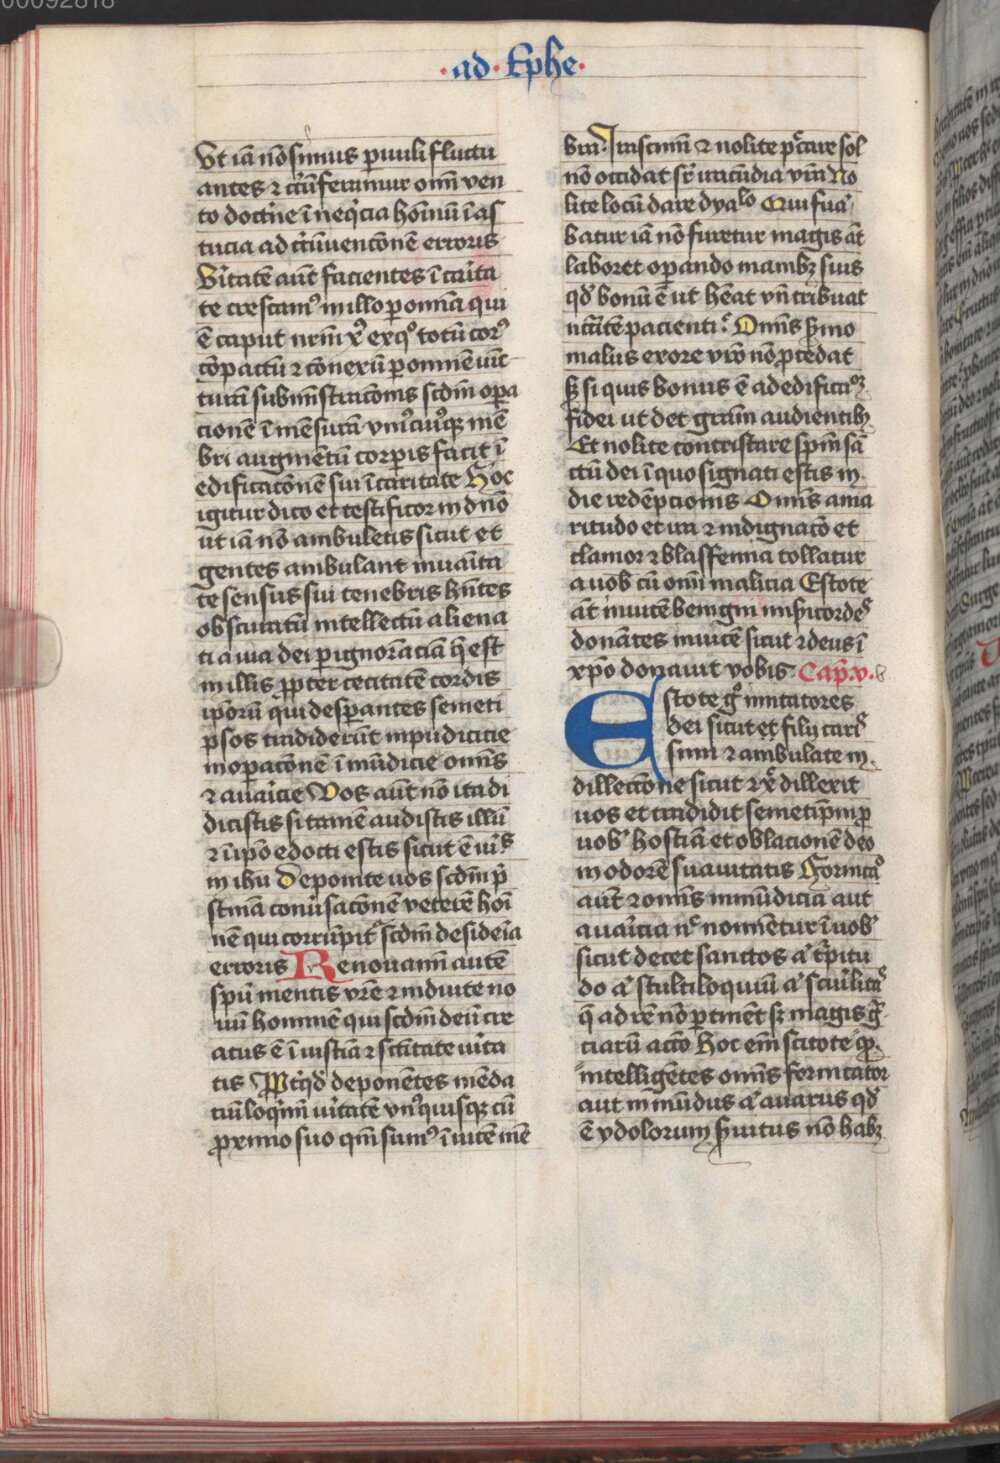 00092818
·ad·Ephe·
Vt iā nō simus ꝑuuli fluctu
antes ⁊ circūferamur omī ven
to doctrīe ī neq̄cia homīnū ī as
tucia ad circūuencōnē erroris
Vitatē aūt facientes ī carita
te crescamꝰ in illo ꝑ omīa qui
ē caput nrm̄ xp̄c ex qͦ totū corꝰ
cōpactū ⁊ cōnexū ꝑ omnē iūc
turā submīstracōnis scdm̄ opa
cionē ī mēsurā vniꝰcuiꝰqꝫ mē
bri augmētū corꝑis facit ī
edificacōnē sui ī caritate Hoc
igitur dico et testificor in dnō
ut iā nō ambuletis sicut et
gentes ambulant in uanita
te sensus sui tenebris hn̄tes
obscuratū intellectū aliena
ti a uia dei ꝑ ignoranciā q̄ est
in illis ꝓpter cecitatē cordis
ip̄orū qui desperantes semeti
ꝑsos tradiderūt inpudicicie
in oꝑacōnē īmūdicie omīs
⁊ auaricie Vos aūt nō ita di
dicistis si tamē audistis illū
⁊ ī ip̄o edocti estis sicut ē ui̓s
in ihū Deponite uos scdm̄ p̓
stinā conuersacōnē veterē homī
nē qui corrūpit̓ scdm̄ desideria
erroris Renouamī autē
spū mentis vrē ⁊ induite no
uū hominē qui scdm̄ deū cre
atus ē ī iusticia ⁊ scītate uita
tis Ꝓpt̓ qd̓ deponētes mēda
ciū loqm̄ī uitatē vnꝰquisqꝫ cū
ꝓximo suo qm̄ sumꝰ īuicē mē
bra Irascimī ⁊ nolite pccare sol
nō occidat sr̄ iracūdia vrām No
lite locū dare dyalo Qui fura
batur iā nō furetur magis āt
laboret oꝑando manibꝫ suis
qd̓ bonū ē ut heāt vn̄ tribuat
ncc̄itē pacienti Omīs ẜmo
malus ex ore vrō nō ꝓcedat
ẜ si quis bonus ē ad edificac̄oꝫ
fidei ut det grām audientibꝫ
Et nolite contristare spm̄ sā
ctū dei ī quo signati estis in
die redēpcionis Omīs ama
ritudo et ira ⁊ indignacō et
clamor ⁊ blasfemia tollatur
a uob cū omī malicia Estote
āt inuicē benigni mīsicordes
donātes inuicē sicut ⁊ deus ī
xp̄o donauit vobis Cap̄.v.
Estote gͦ imitatores
dei sicut et filij carī
simi ⁊ ambulate in
dilleccōne sicut ⁊ xp̄c dillexit
uos et tradidit semetip̄m ꝓ
uobꝰ hostiā et oblacionē deo
in odorē suauitatis Fornicaͦ
aūt ⁊ omīs inmūdicia aut
auaricia nͨ nomīetur ī uobꝰ
sicut decet sanctos aͭ tꝑitu
do aͭ stultiloquiū aͭ scurilitaˢ
q̄ ad rē nō ꝑtinēt sꝫ magis gr̄a
ciarū acc̄o Hoc em̄ scitote qꝫ
intelligētes omīs fornicator
aut inmūdus aͭ auarus qd̓
ē ydolorum ẜuitus nō habꝫ